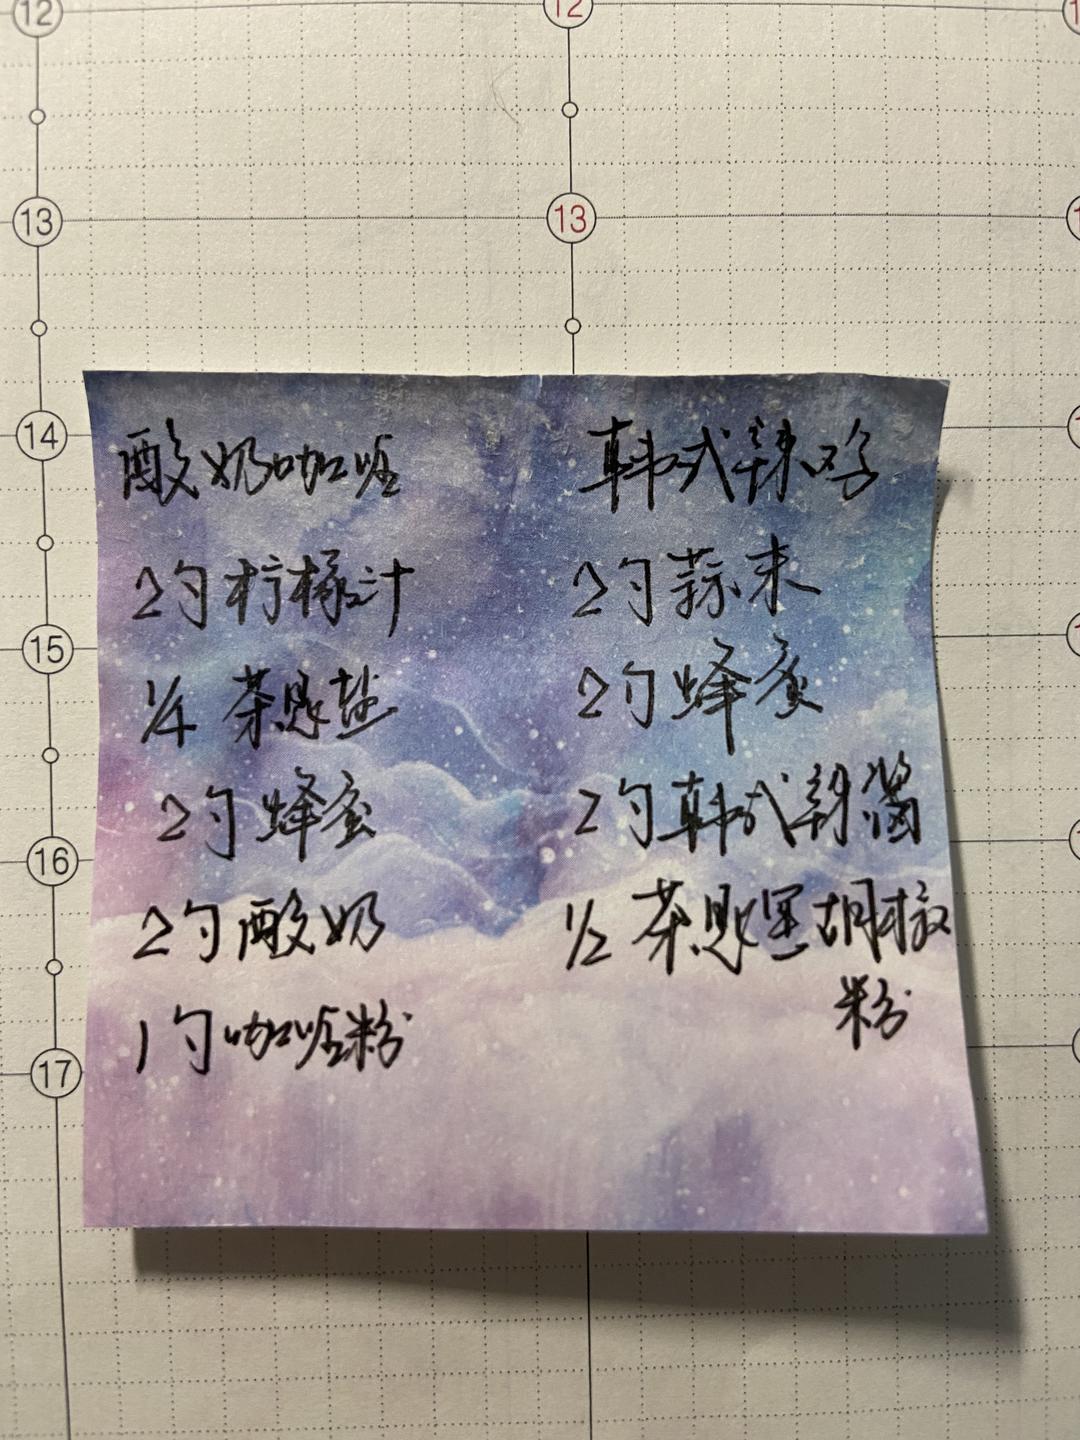 12
12
13
13
14
15
16
17
酸奶咖喱
2勺柠檬汁
1/4 茶匙盐
2勺蜂蜜
2勺酸奶
1勺咖喱粉
韩式辣鸡
2勺蒜末
2勺蜂蜜
2勺韩式辣酱
1/2 茶匙黑胡椒
粉